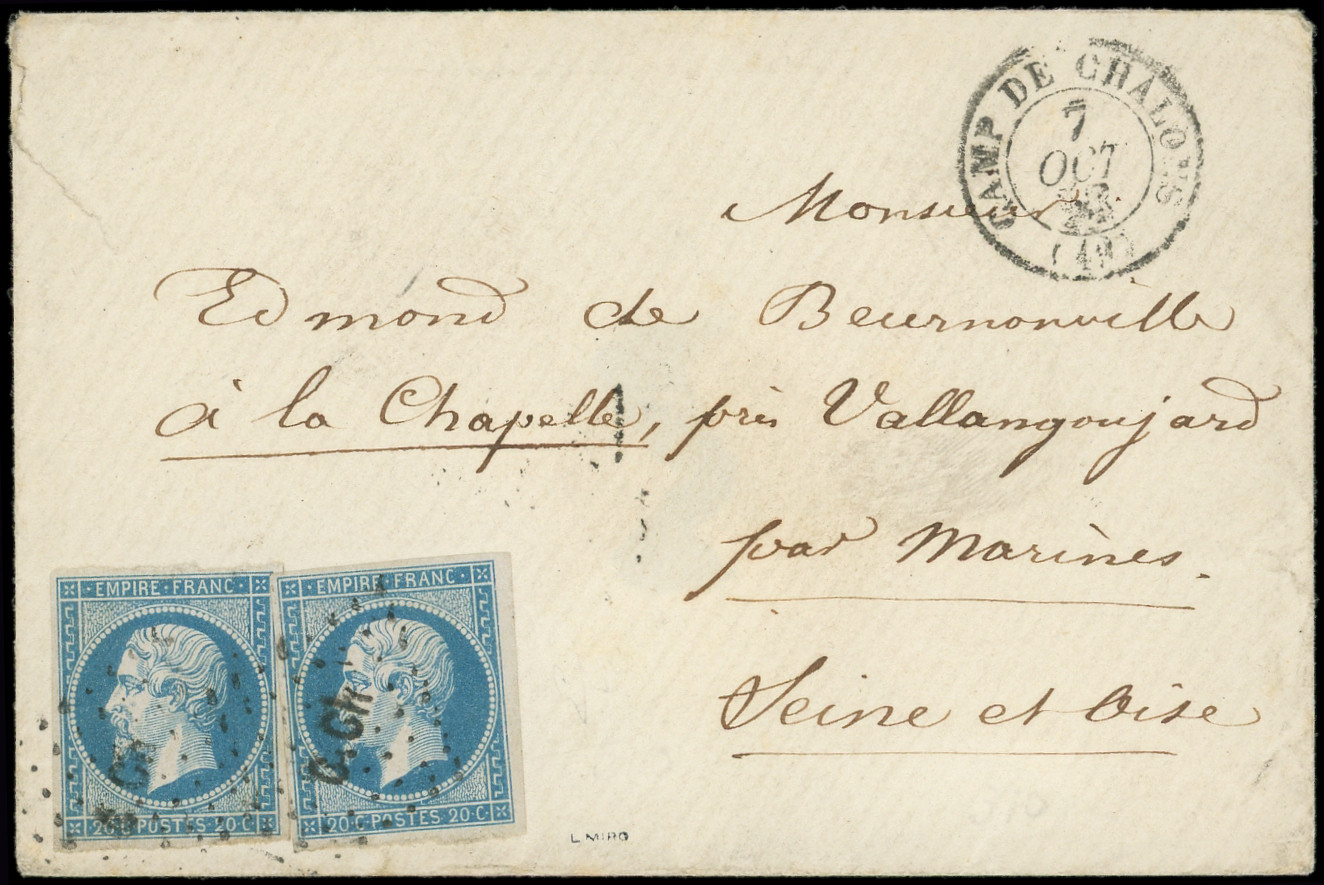 CAMP DE CHALONS
7
OCT
(49)
Monsieur
Edmond de Beurnonville
à la Chapelle, près Vallangoujard
par Marines.
Seine et Oise
EMPIRE · FRANC ·
20 · C · POSTES · 20 · C ·
EMPIRE · FRANC ·
20 · C · POSTES · 20 · C ·
C.Ch
L. MIRO